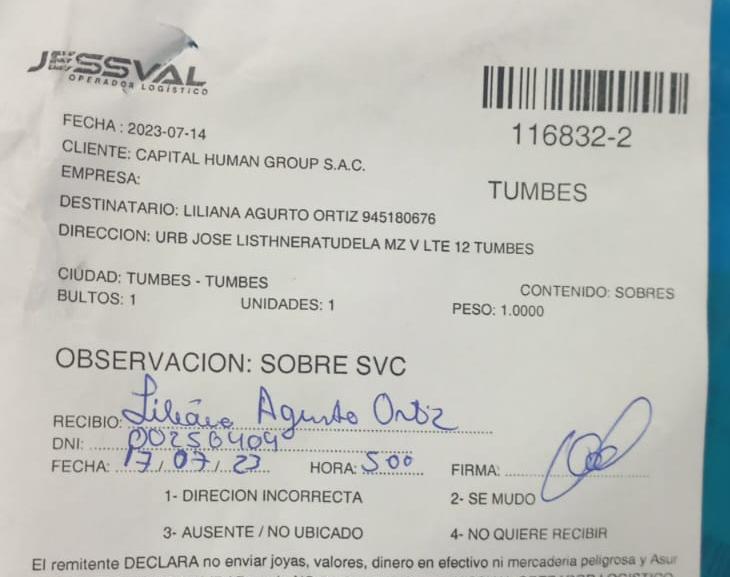 JESSVAL
OPERADOR LOGÍSTICO
116832-2
TUMBES
FECHA : 2023-07-14
CLIENTE: CAPITAL HUMAN GROUP S.A.C.
EMPRESA:
DESTINATARIO: LILIANA AGURTO ORTIZ 945180676
DIRECCION: URB JOSE LISTHNERATUDELA MZ V LTE 12 TUMBES
CIUDAD: TUMBES - TUMBES
CONTENIDO: SOBRES
BULTOS: 1 UNIDADES: 1 PESO: 1.0000
OBSERVACION: SOBRE SVC
RECIBIO: Liliana Agurto Ortiz
DNI: 00250409
FECHA: 17/07/23 HORA: 500 FIRMA:
1- DIRECION INCORRECTA 2- SE MUDO
3- AUSENTE / NO UBICADO 4- NO QUIERE RECIBIR
El remitente DECLARA no enviar joyas, valores, dinero en efectivo ni mercaderia peligrosa y Asur